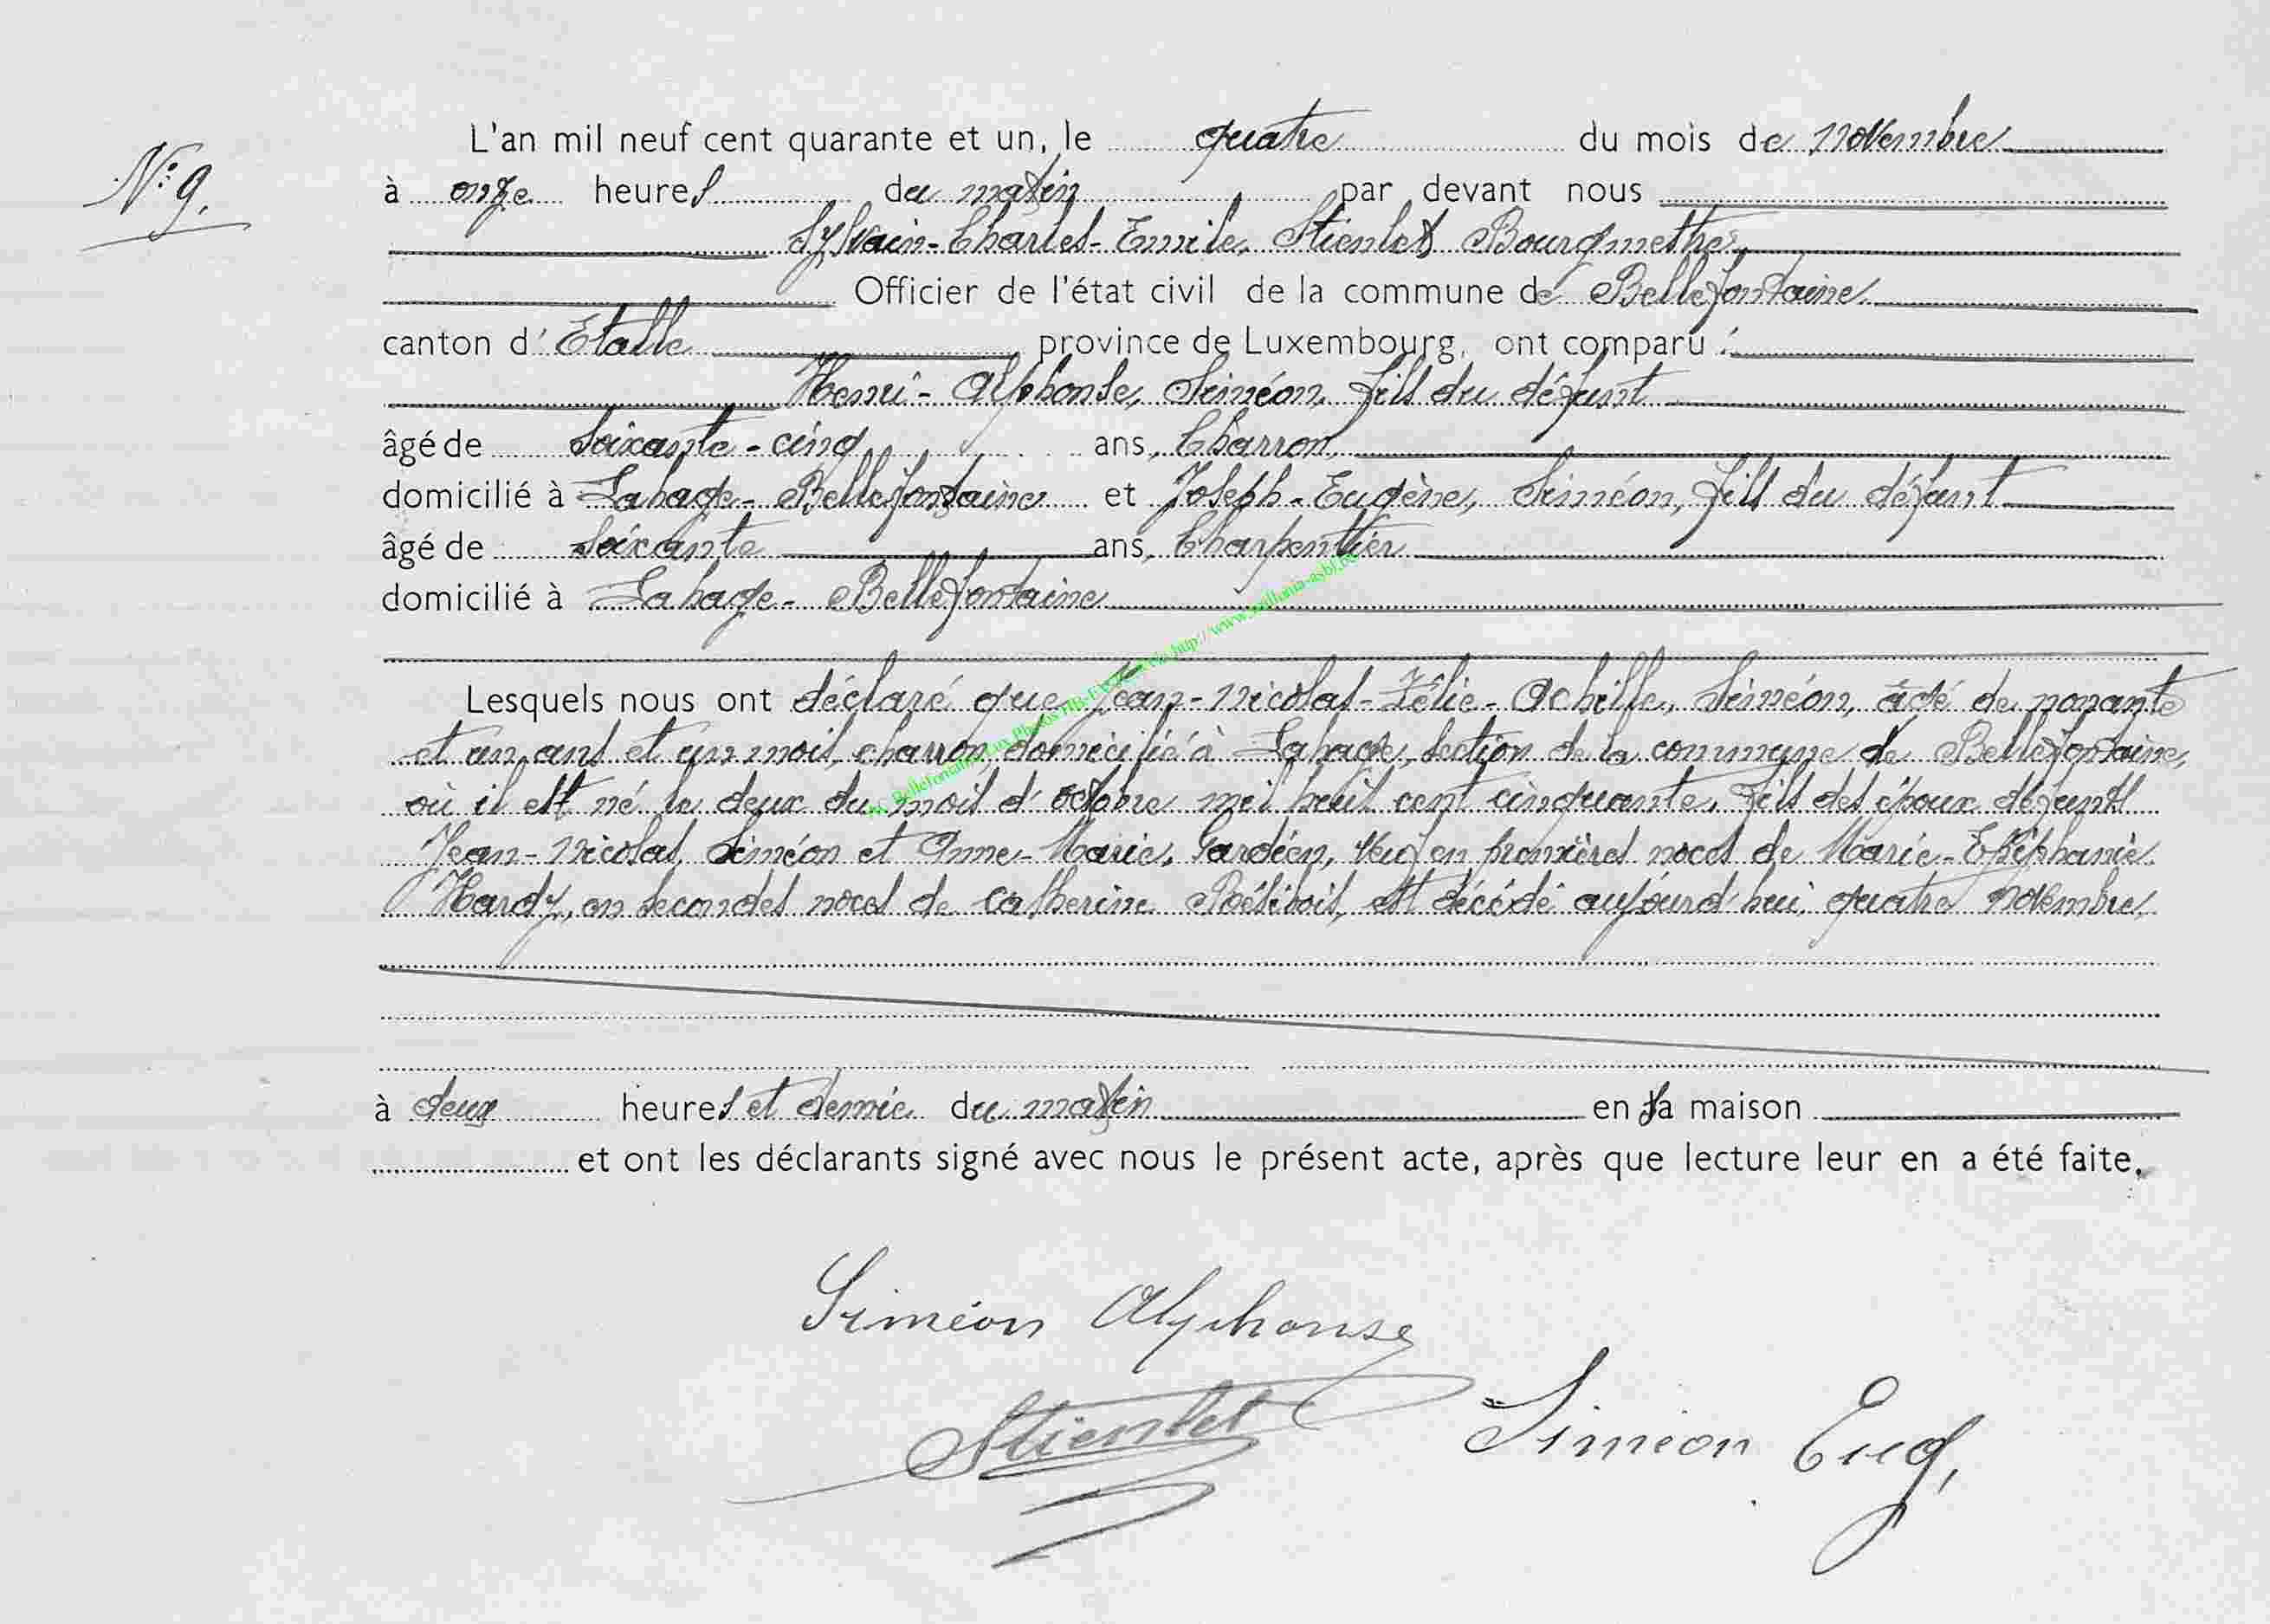 N° 9.
L'an mil neuf cent quarante et un, le quatre du mois de novembre
à onze heures du matin par devant nous
Sylvain-Charles-Emile, Stienlet Bourgmestre,
Officier de l'état civil de la commune de Bellefontaine
canton d'Etalle province de Luxembourg, ont comparu :
Henri-Alphonse, Siméon, fils du défunt
âgé de soixante-cinq ans, Charron,
domicilié à Lahage-Bellefontaine et Joseph-Eugène, Siméon, fils du défunt
âgé de soixante ans, Charpentier
domicilié à Lahage-Bellefontaine
Lesquels nous ont déclaré que Jean-Nicolas-Zélie-Achille, Siméon, âgé de nonante
et un ans et un mois, charron, domicilié à Lahage, section de la commune de Bellefontaine,
où il est né le deux du mois d'octobre mil huit cent cinquante, fils des époux défunts
Jean-Nicolas, Siméon et Anne-Marie, Gardien, veuf en premières noces de Marie-Epiphanie
Hardy, en secondes noces de Catherine est décédé aujourd'hui, quatre novembre,
à deux heures et demie du matin en sa maison
et ont les déclarants signé avec nous le présent acte, après que lecture leur en a été faite.
Siméon Alphonse
Stienlet
Siméon Eug,